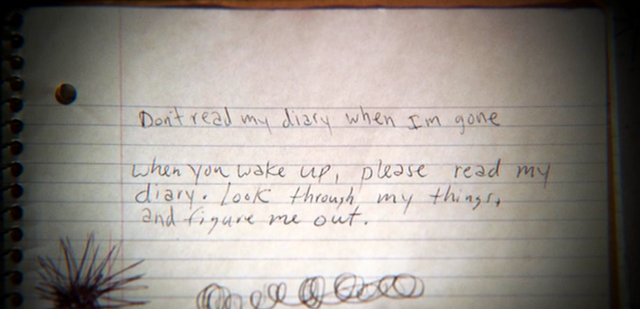 Don't read my diary when I'm gone
When you wake up, please read my
diary. Look through my things,
and figure me out.